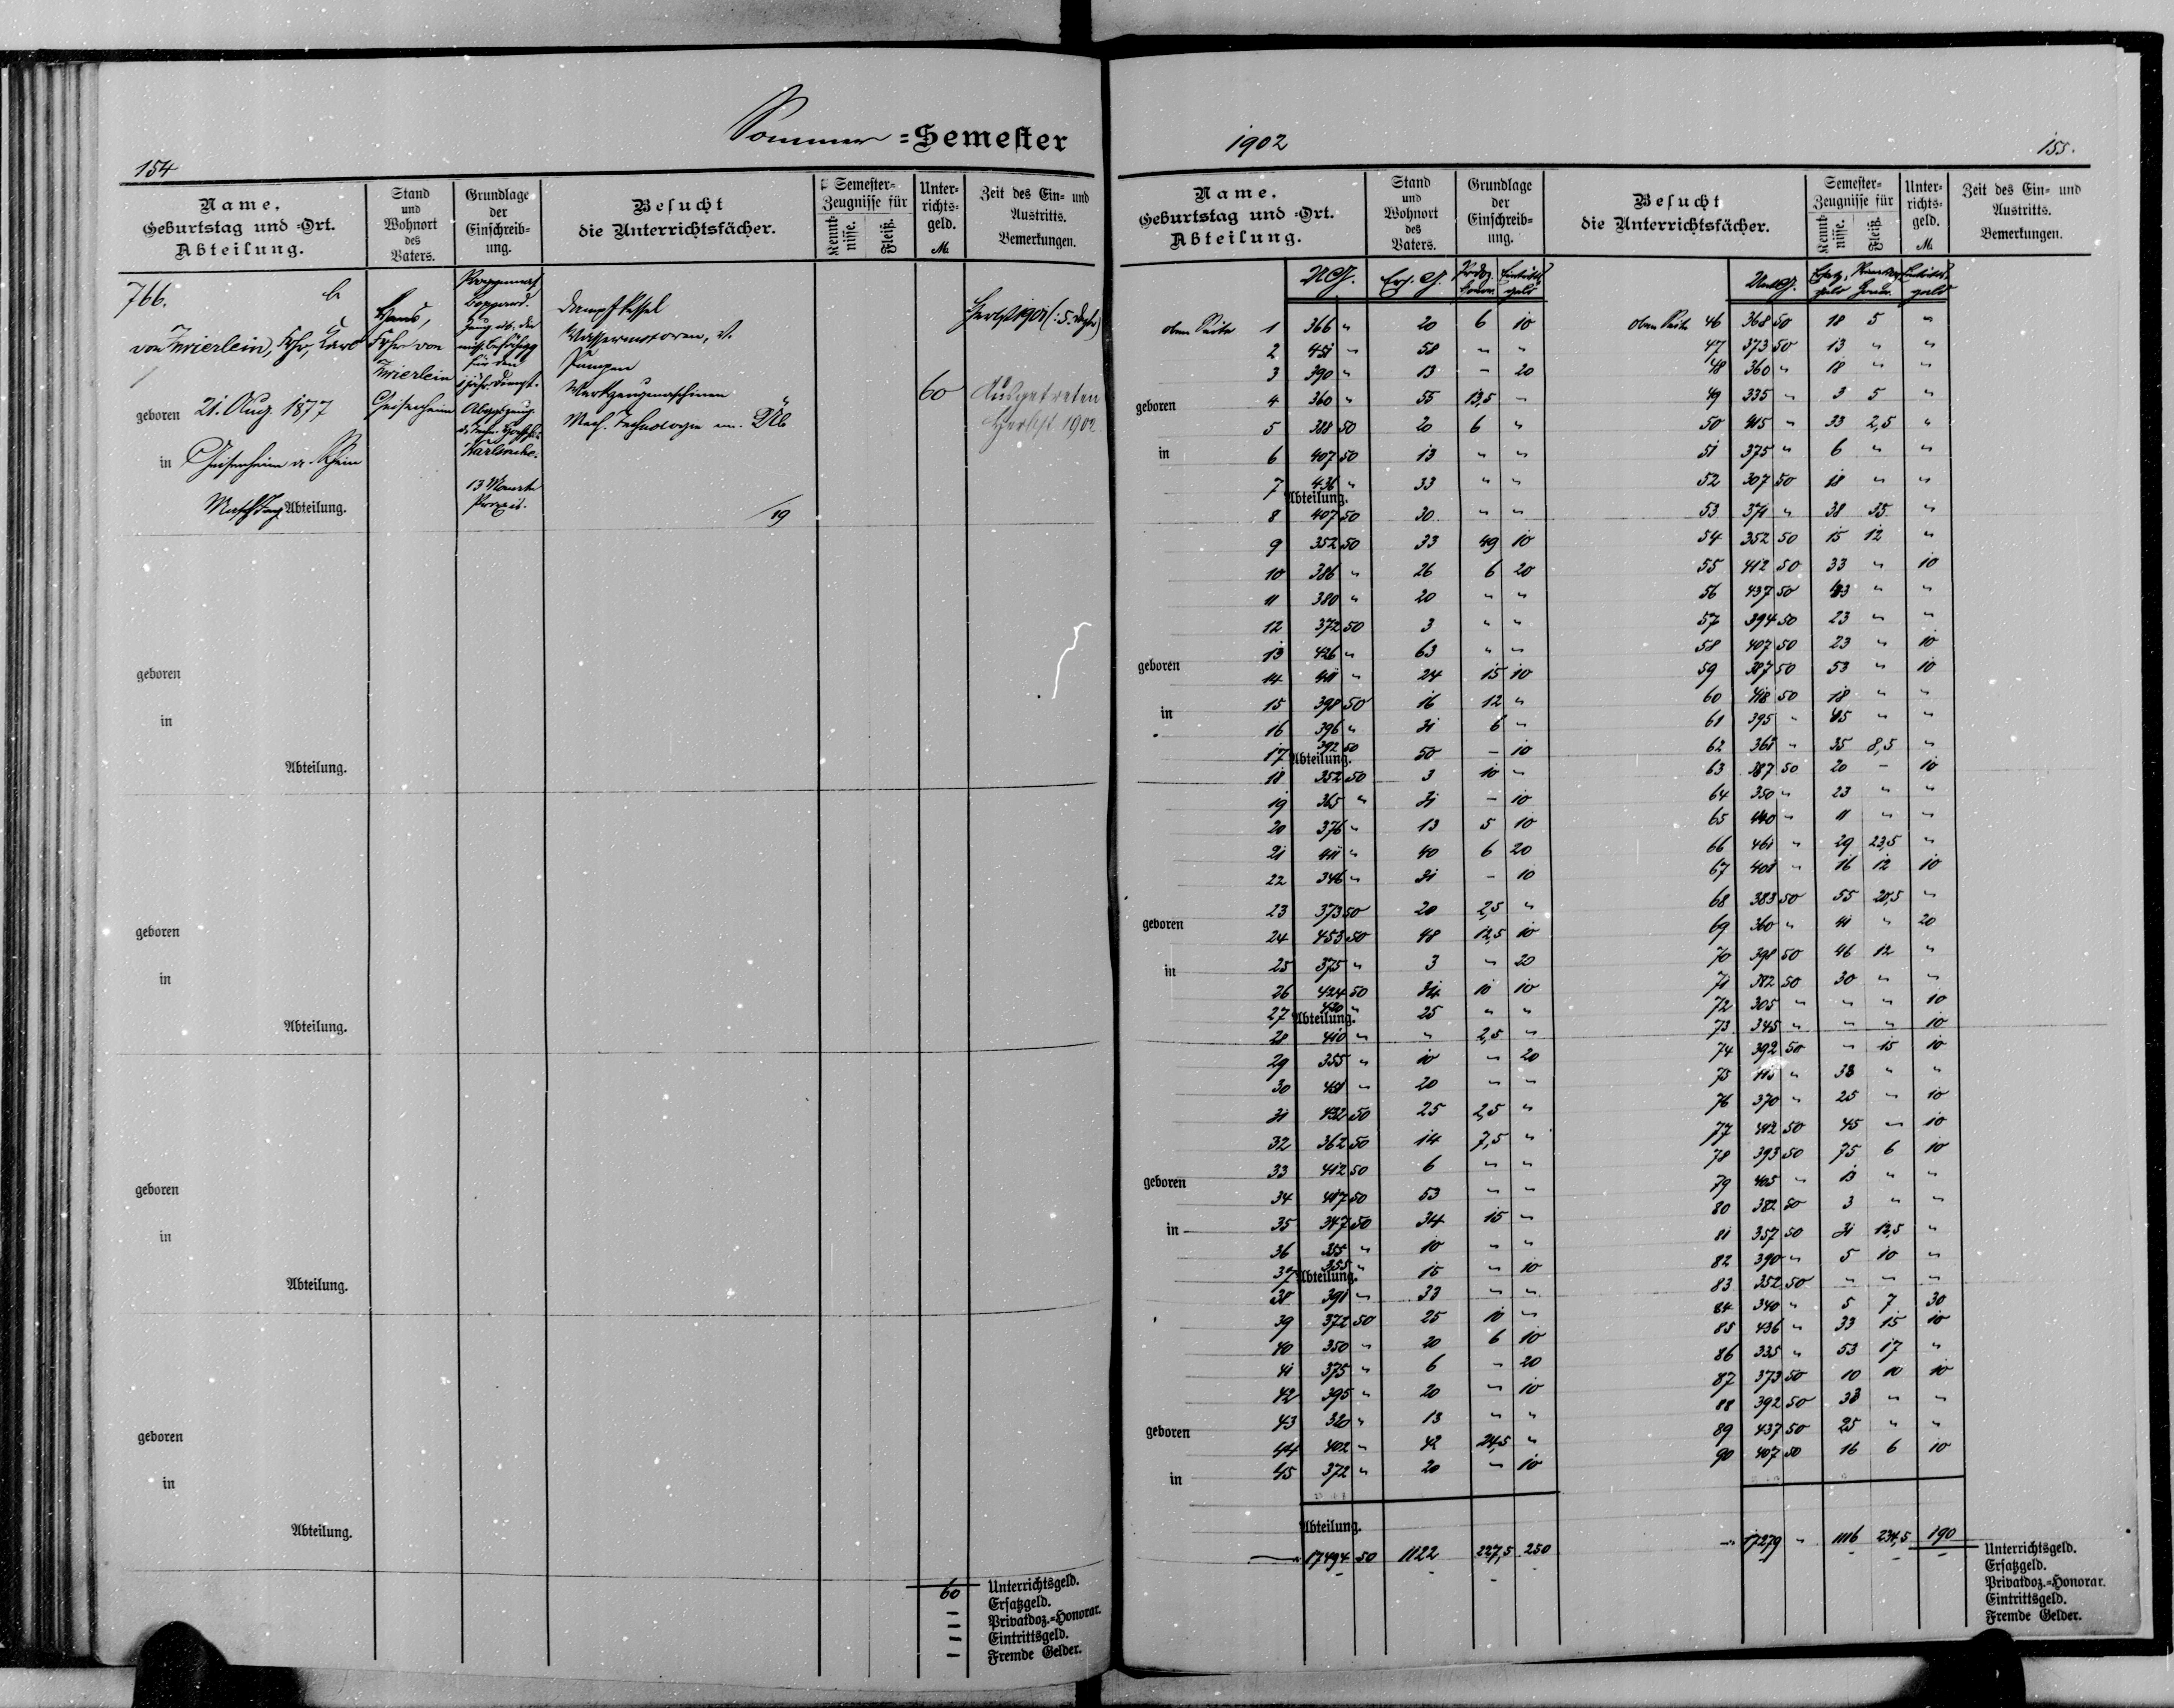 Sommer =Semester
154
Name, Geburtstag und =Ort. Abteilung.
Stand und Wohnort des Vaters.
Grundlage der Einschreib= ung.
Besucht die Unterrichtsfächer.
Semester= Zeugnisse für
Kennt= nisse.
Fleiß.
Unter= richts= geld. M.
Zeit des Ein= und Austritts. Bemerkungen.
766.
von Zwierlein, Frhr, Karl
geboren 21. Aug. 1877
in Geisenheim a. Rhein
Abteilung.
Hans,
Frhr von
Zwierlein
Geisenheim
Boppard.
für den
Karlsruhe.
13 Monate
Praxis.
Dampfkessel
Wassermotoren, V.
Pumpen
Werkzeugmaschinen
Mech. Technologie m. Üb
19
60
Herbst 1901
Ausgetreten
Herbst 1902.
geboren
in
Abteilung.
geboren
in
Abteilung.
geboren
in
Abteilung.
geboren
in
Abteilung.
60 Unterrichtsgeld.
– Ersatzgeld.
– Privatdoz.=Honorar.
– Eintrittsgeld.
– Fremde Gelder.
1902
155.
Name, Geburtstag und =Ort. Abteilung.
Stand und Wohnort des Vaters.
Grundlage der Einschreib= ung.
Besucht die Unterrichtsfächer.
Semester= Zeugnisse für
Kennt= nisse.
Fleiß.
Unter= richts= geld. M.
Zeit des Ein= und Austritts. Bemerkungen.
oben Seite 1 366 " 20 6 10
2 451 " 58 " "
3 390 " 13 – 20
geboren 4 360 " 55 13,5 –
5 388 50 20 6 "
in 6 407 50 13 " "
7 436 " 33 " "
Abteilung.
8 407 50 30 " "
9 352 50 33 49 10
10 386 " 26 6 20
11 380 " 20 " "
12 372 50 3 " "
13 426 " 63 " "
geboren
14 411 " 24 15 10
15 398 50 16 12 "
in
16 396 " 31 6 "
17 392 50 50 – 10
Abteilung.
18 352 50 3 10 "
19 365 " 31 – 10
20 376 " 13 5 10
21 411 " 40 6 20
22 346 " 31 – 10
23 373 50 20 2,5 "
geboren
24 453 50 48 12,5 10
25 375 " 3 " 20
in
26 424 50 34 10 10
27 430 " 25 " "
Abteilung.
28 410 " " 2,5 "
29 355 " 10 " 20
30 " 20 " "
31 432 50 25 2,5 "
32 362 50 14 7,5 "
33 412 50 6 " "
geboren
34 417 50 53 " "
35 347 50 34 15 "
in
36 355 " 10 " "
37 355 " 15 " 10
Abteilung.
38 391 " 33 " "
39 372 50 25 10 "
40 350 " 20 6 10
41 375 " 6 – 20
42 395 " 20 " 10
43 320 " 13 " "
geboren
44 402 " 42 24,5 "
45 372 " 20 – 10
in
Abteilung.
17494 50 1122 227,5 250
oben Seite 46 368 50 18 5 "
47 373 50 13 " "
48 360 " 18 " "
49 335 " 3 5 "
50 415 " 33 2,5 "
51 375 " 6 " "
52 307 50 18 " "
53 371 " 38 35 "
54 352 50 15 12 "
55 412 50 33 " 10
56 437 50 " "
57 394 50 23 " "
58 407 50 23 " 10
59 387 50 53 " 10
60 418 50 18 " "
61 395 " " "
62 361 " 35 8,5 "
63 387 50 20 – 10
64 350 " 23 " "
65 440 " 11 " "
66 461 " 29 23,5 "
67 401 " 16 12 10
68 383 50 55 20,5 "
69 360 " 41 " 20
70 398 50 46 12 "
71 382 50 30 " "
72 305 " " " 10
73 345 " " " 10
74 392 50 " 15 10
75 415 " 38 " "
76 370 " 25 " 10
77 412 50 45 – 10
78 393 50 75 6 10
79 405 " 13 " "
80 382 50 3 " "
81 357 50 31 12,5 "
82 390 " 5 10 "
83 352 50 " " "
84 340 " 5 7 30
85 436 " 33 15 10
86 335 " 53 17 "
87 373 50 10 10 10
88 392 50 38 " "
89 437 50 25 " "
90 407 50 16 6 10
17279 " 1116 234,5 190
Unterrichtsgeld.
Ersatzgeld.
Privatdoz.=Honorar.
Eintrittsgeld.
Fremde Gelder.